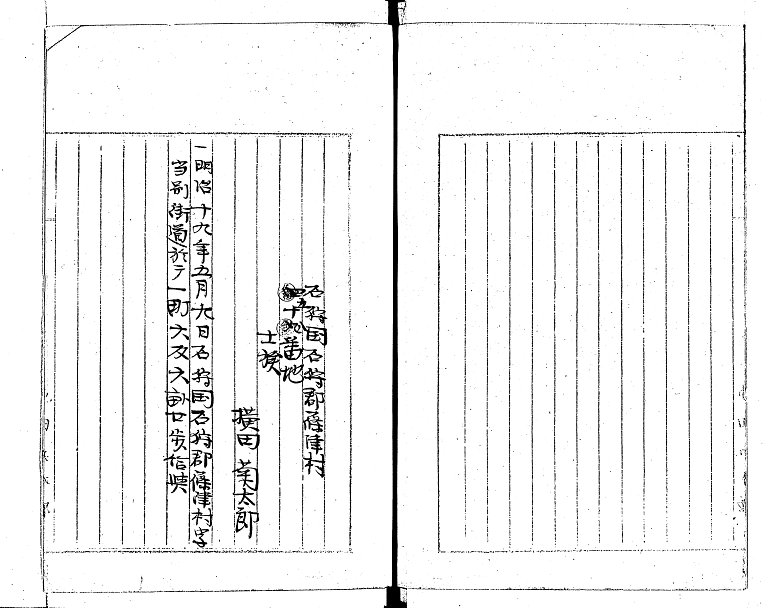 石狩国石狩郡篠津村
四十九番地
士族
横田菊太郎
一明治十九年五月九日石狩国石狩郡篠津村字
当別街道於テ一町六反六畝廿歩